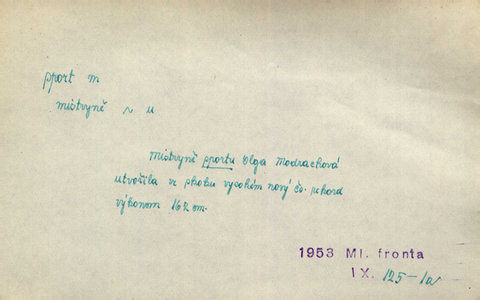 sport m
mistryně v u
Mistryně sportu Olga Modrachová
utvořila ve skoku vysokém nový čs. rekord
výkonem 162 cm.
1953 Ml. fronta
IX. 125-1a